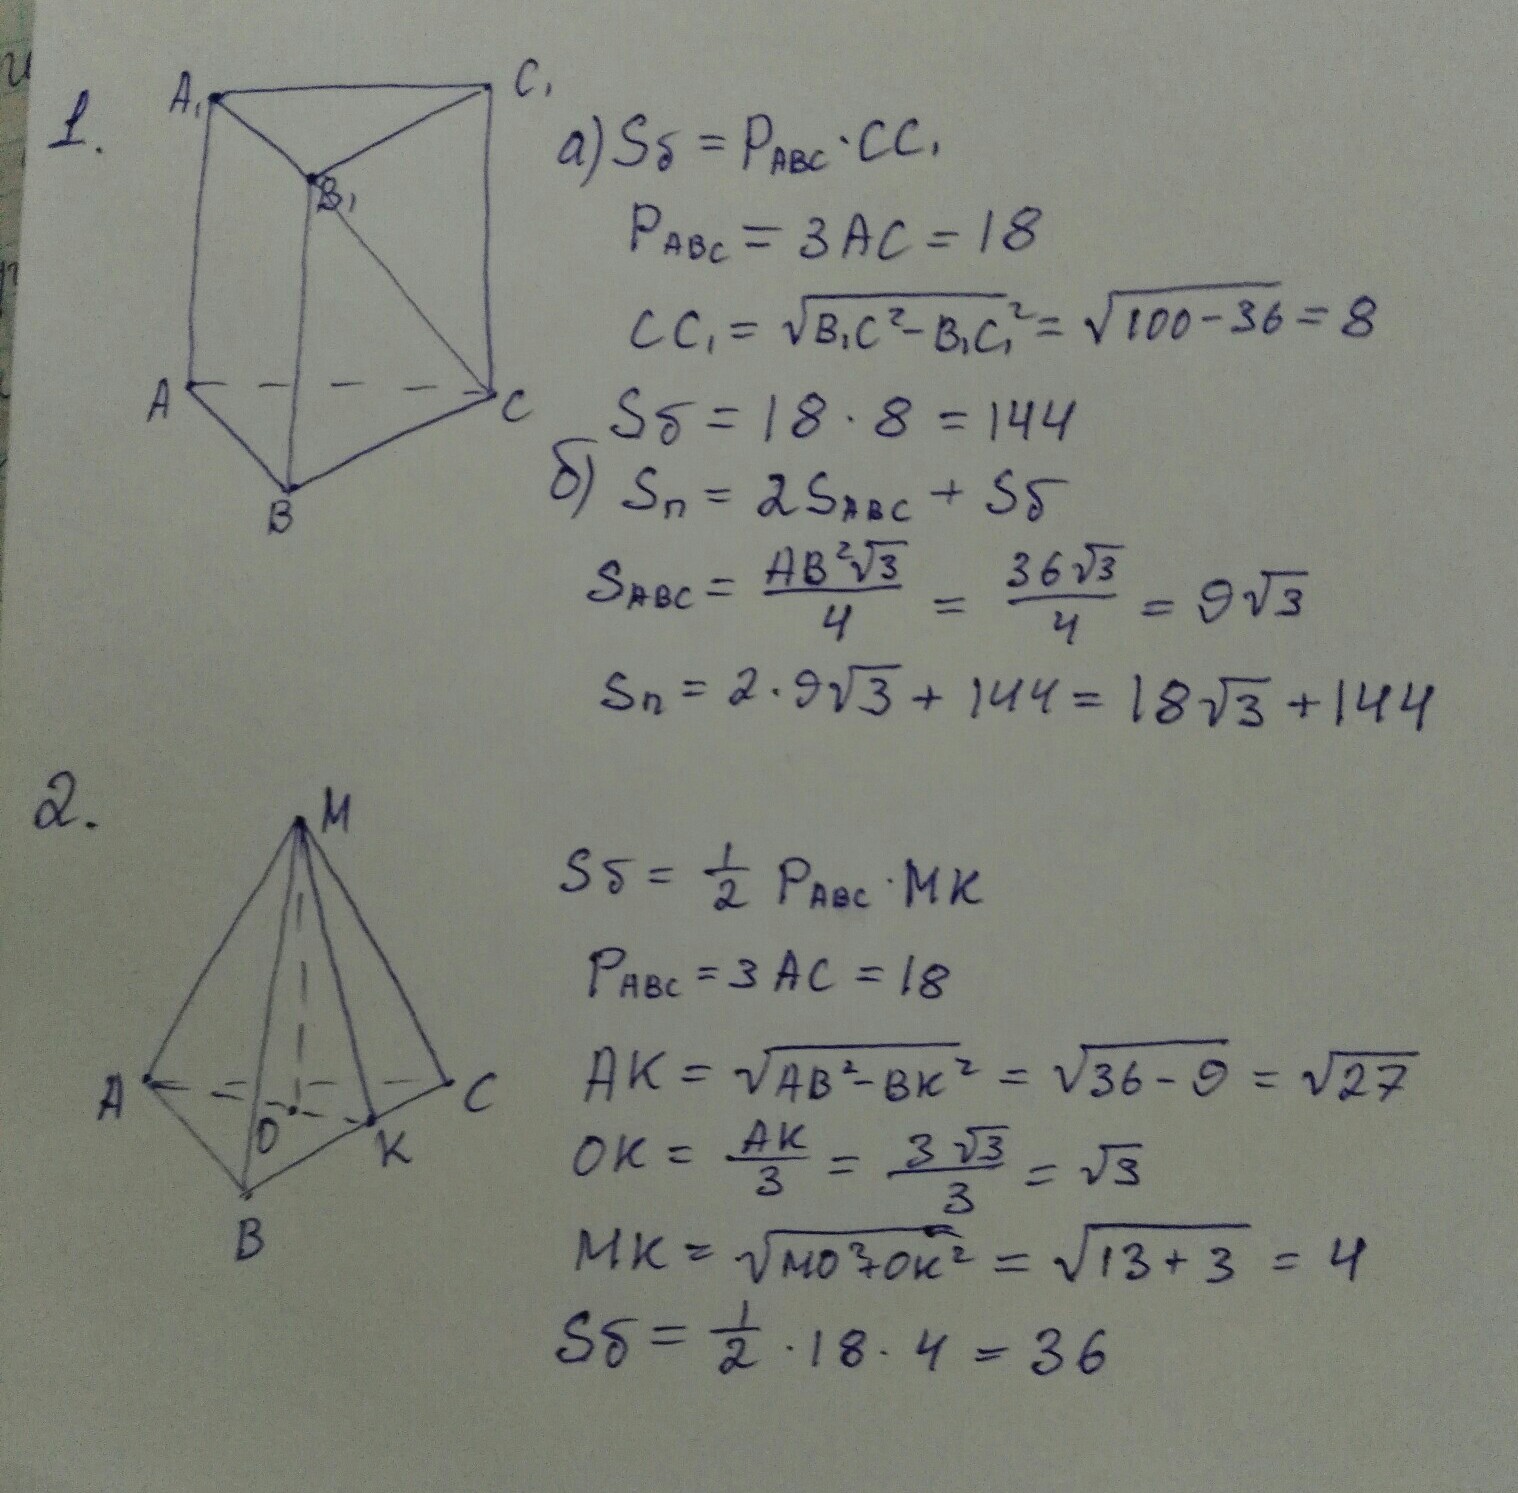 1.
A₁
C₁
B₁
A
C
B
а) Sб = P_ABC · CC₁
P_ABC = 3AC = 18
CC₁ = √(B₁C² - B₁C₁²) = √(100 - 36) = 8
Sб = 18 · 8 = 144
б) Sп = 2S_ABC + Sб
S_ABC = AB²√3/4 = 36√3/4 = 9√3
Sп = 2 · 9√3 + 144 = 18√3 + 144
2.
M
A
O
C
K
B
Sб = 1/2 P_ABC · MK
P_ABC = 3AC = 18
AK = √(AB² - BK²) = √(36 - 9) = √27
OK = AK/3 = 3√3/3 = √3
MK = √(MO² + OK²) = √(13 + 3) = 4
Sб = 1/2 · 18 · 4 = 36